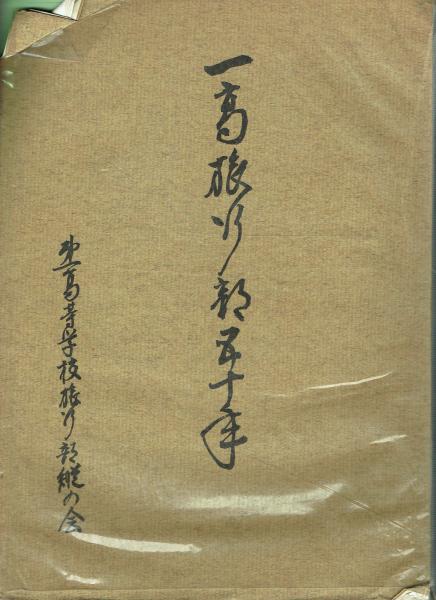 一高旅行部五十年
第一高等学校旅行部縦の会